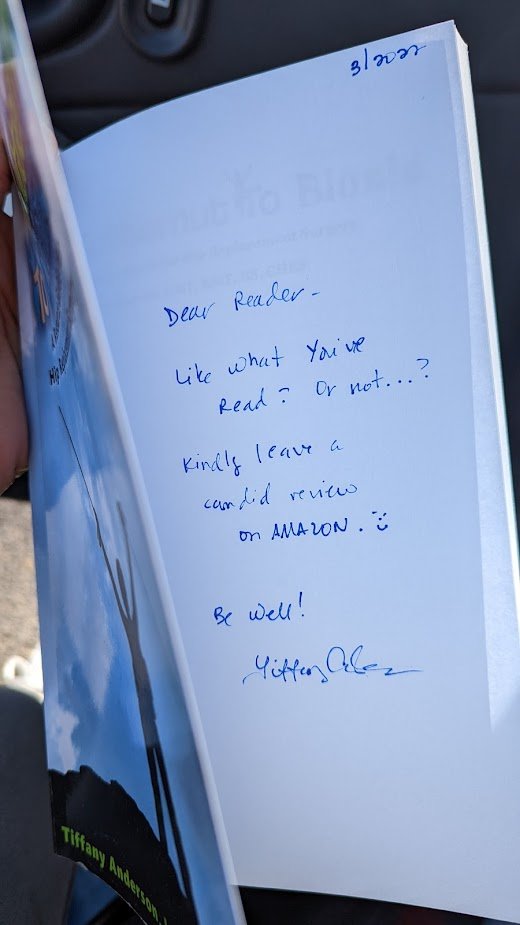 3/2022
Dear Reader -
Like what You've
Read? Or not...?
Kindly leave a
candid review
on AMAZON.
Be well!
Tiffany
Tiffany Anderson